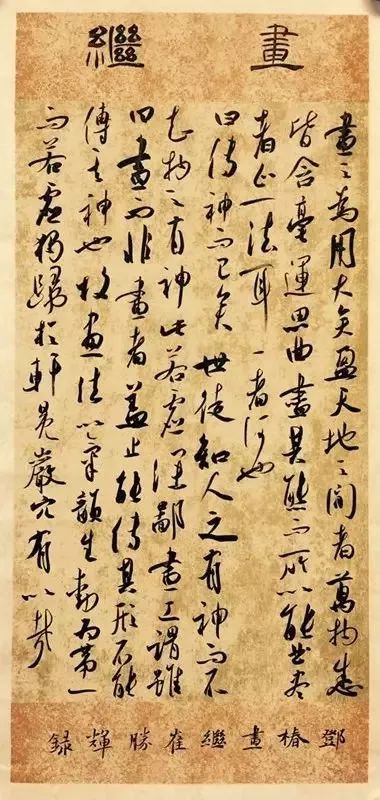 畫繼
畫之為用大矣盈天地之間者萬物悉
皆含毫運思曲盡其態而所以能曲盡
者止一法耳一者何也
曰傳神而已矣世徒知人之有神而不
知物之有神此若虛深鄙畫工謂雖
曰畫而非畫者蓋止能傳其形不能
傳其神也故畫法以氣韻生動為第一
而若虛獨歸於軒冕巖穴有以哉
鄧椿畫繼崔勝輝錄